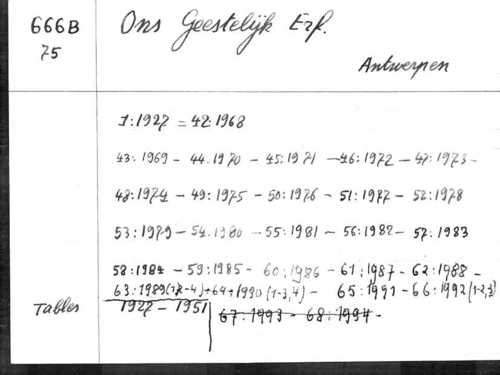 666B
75
Ons Geestelijk Erf.
Antwerpen
1:1927 = 42:1968
43:1969 - 44.1970 - 45:1971 - 46:1972 - 47:1973 -
48:1974 - 49:1975 - 50:1976 - 51:1977 - 52:1978
53:1979 - 54.1980 - 55:1981 - 56:1982 - 57:1983
58:1984 - 59:1985 - 60:1986 - 61:1987 - 62:1988 -
63:1989 (1,2-4) + 64:1990 (1-3,4) - 65:1991 - 66:1992 (1-2,3)
Tables 1927 - 1951 67:1993 - 68:1994 -